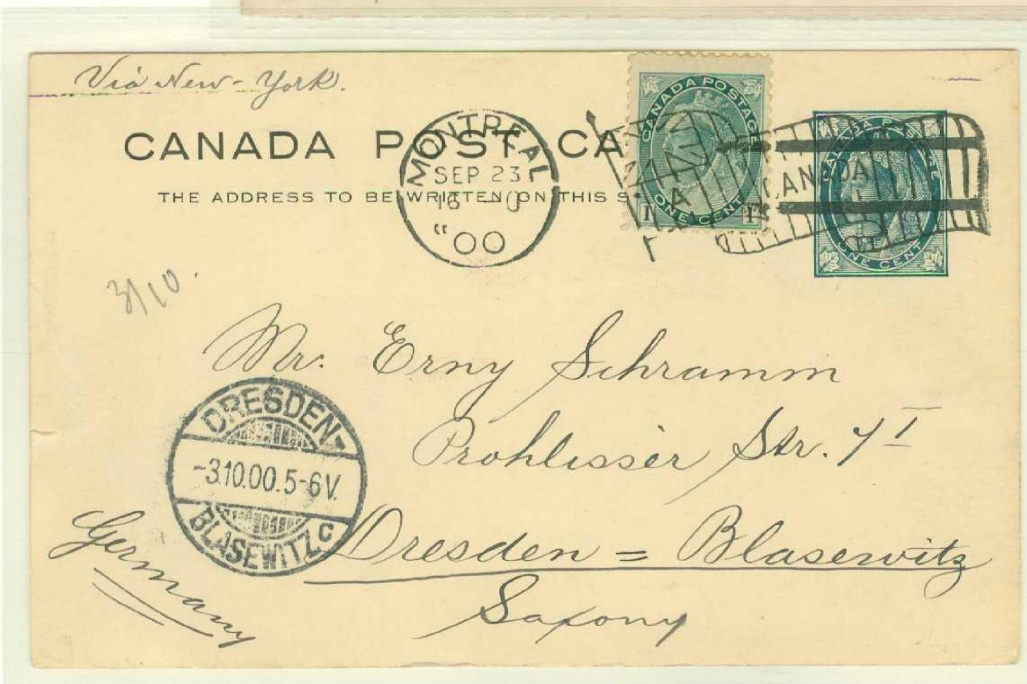 Via New-York.
CANADA POST CA
THE ADDRESS TO BE WRITTEN ON THIS S
MONTREAL
SEP 23
16 0
00
CANADA POSTAGE
1 ONE CENT 1
CANADA
CANADA POSTAGE
ONE CENT
3/10.
Mr. Erny Schramm
Prohlisser Str. 7 I
Dresden = Blasewitz
Saxony
Germany
DRESDEN-
-3.10.00.5-6V.
BLASEWITZ c